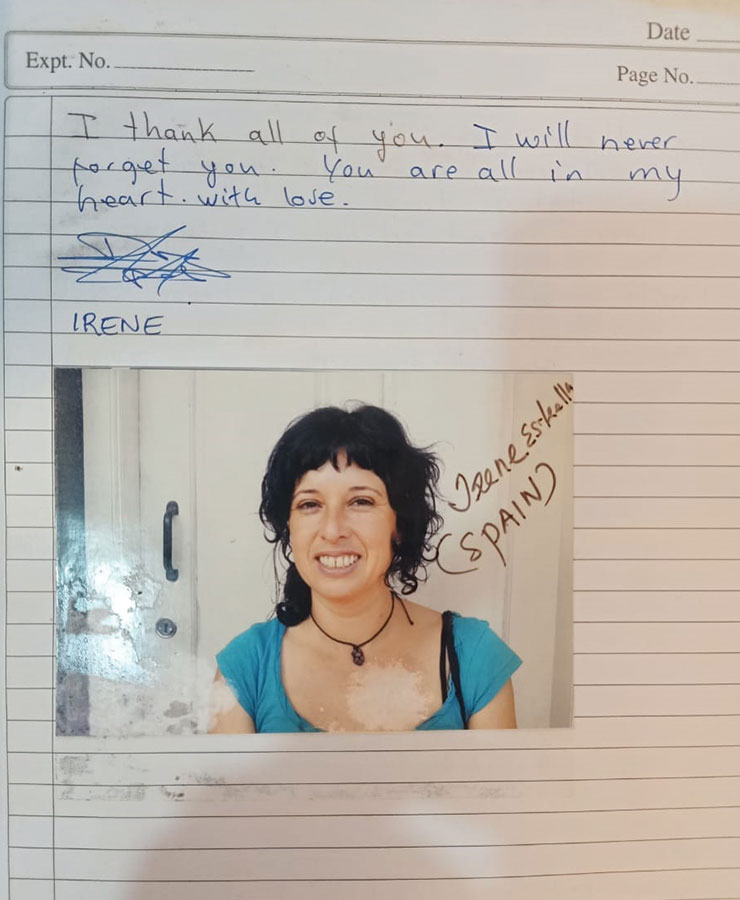 Date
Expt. No.
Page No.
I thank all of you. I will never
forget you. You are all in my
heart. with love.
IRENE
Irene
(SPAIN)